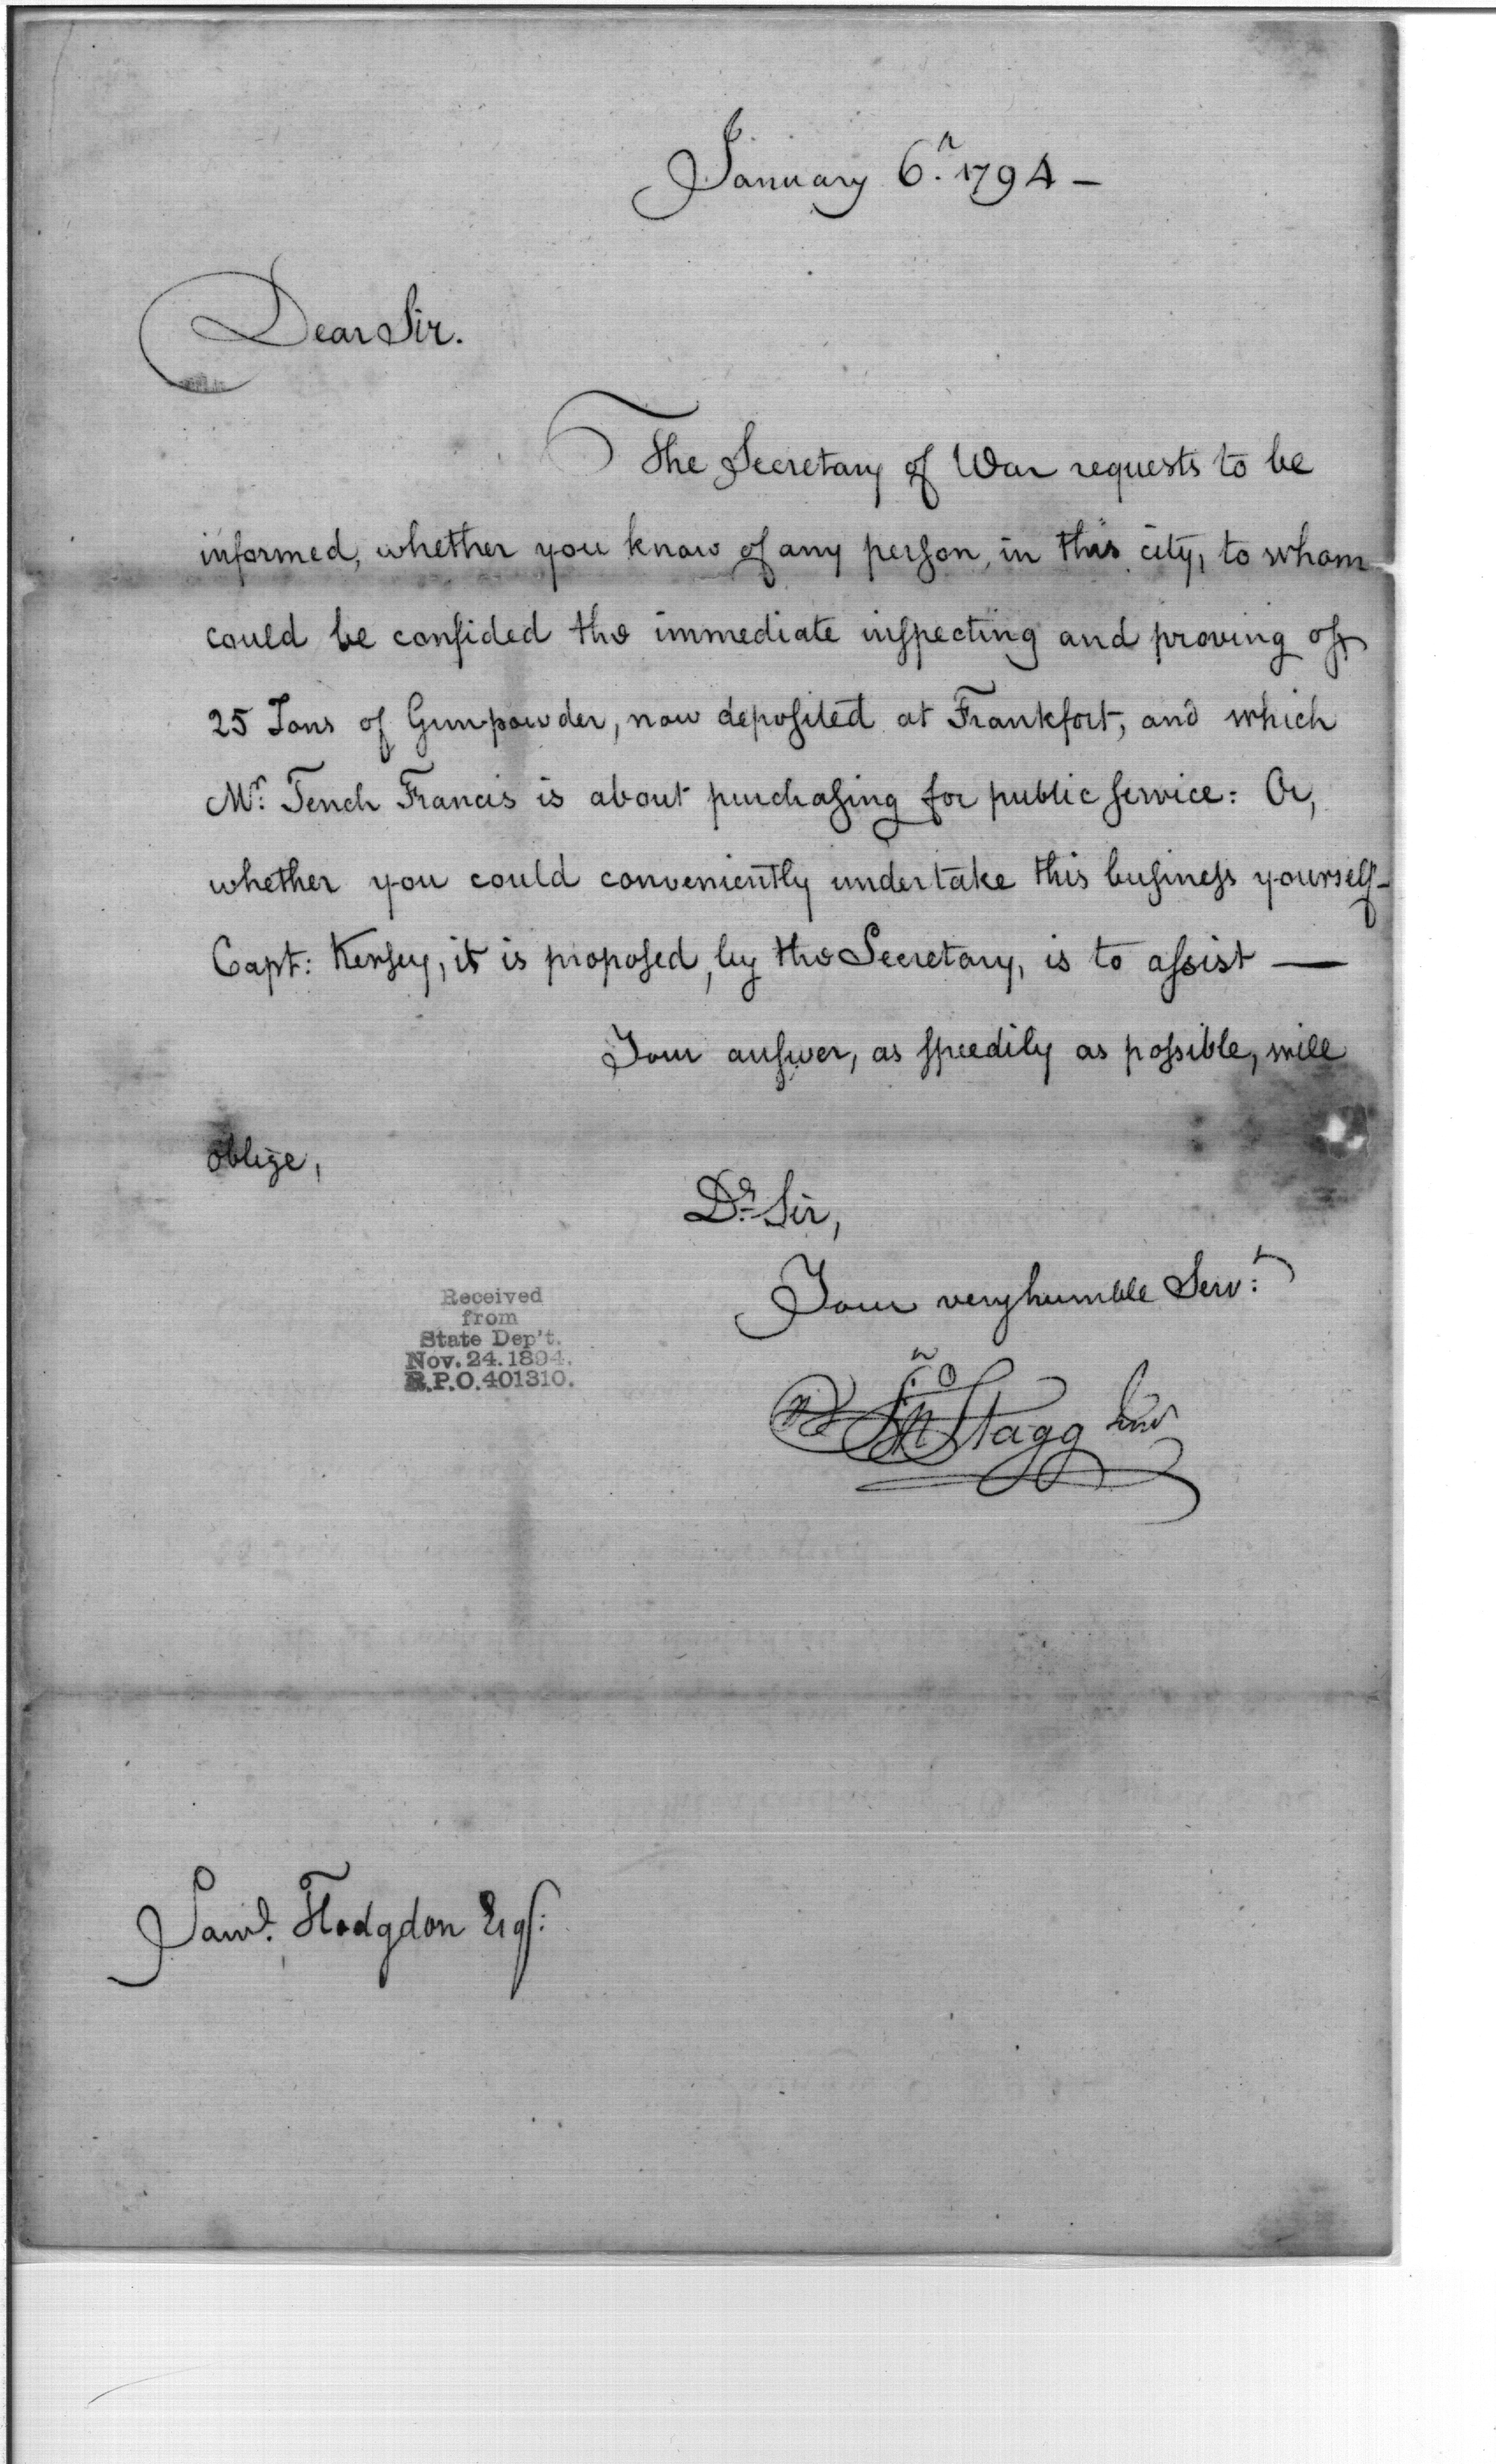 January 6th 1794 –
Dear Sir.
The Secretary of War requests to be
informed, whether you know of any person, in this city, to whom
could be confided the immediate inspecting and proving of
25 Tons of Gunpowder, now deposited at Frankfort, and which
Mr. Tench Francis is about purchasing for public service: Or,
whether you could conveniently undertake this business yourself –
Capt: Kersey, it is proposed, by the Secretary, is to assist —
Your answer, as speedily as possible, will
oblige,
Dr. Sir,
Your very humble Servt:
Jno Stagg Junr
Received
from
State Dep't.
Nov. 24. 1894.
R.P.O. 401310.
Saml. Hodgdon Esqr: